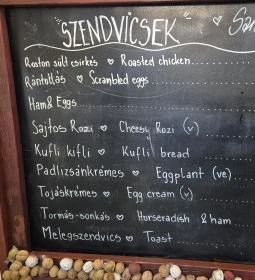 SZENDVICSEK
Roston sült csirkés ♡ Roasted chicken
Rántottás ♡ Scrambled eggs
Ham & Eggs
Sajtos Rozi ♡ Cheesy Rozi (v)
Kufli kifli ♡ Kufli bread
Padlizsánkrémes ♡ Eggplant (ve)
Tojáskrémes ♡ Egg cream (v)
Tormás-sonkás ♡ Horseradish & ham
Melegszendvics ♡ Toast